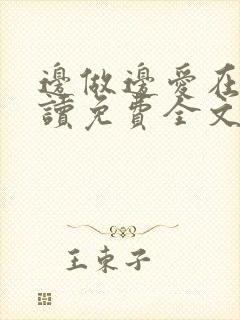 邊做邊愛在
讀免費全文
王束子